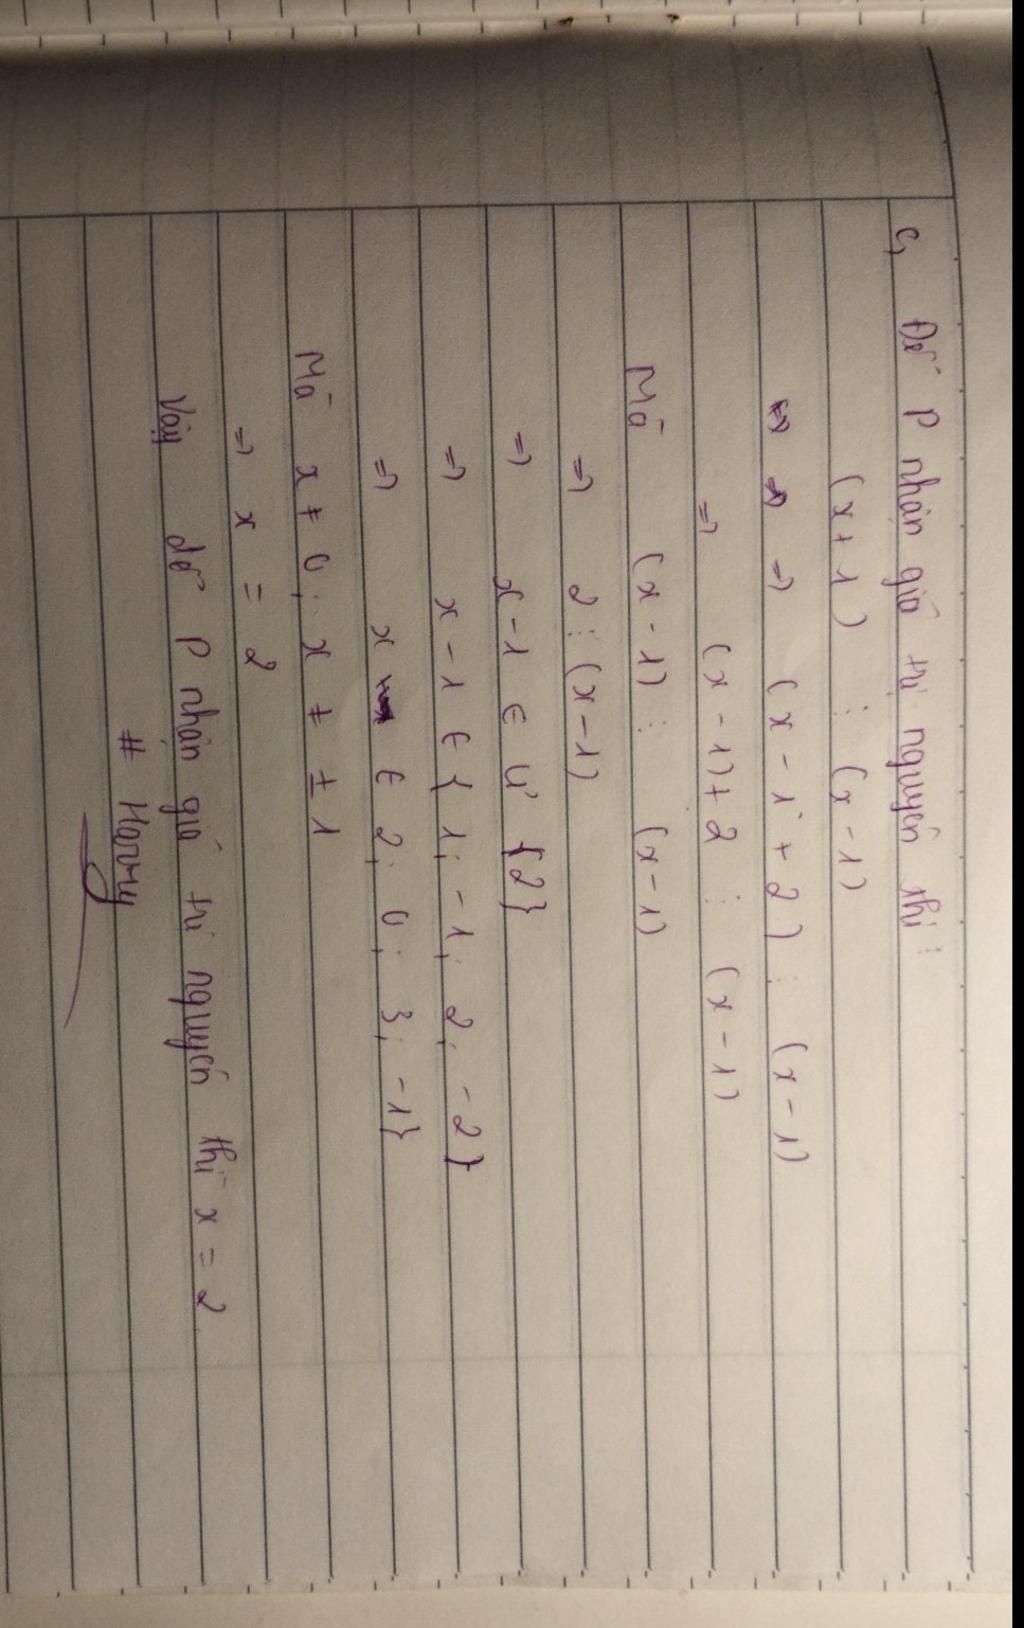 c, Để P nhận giá trị nguyên thì:
(x + 1) ⋮ (x - 1)
⇔ ⇒ ⇒ (x - 1 + 2) ⋮ (x - 1)
⇒ (x - 1) + 2 ⋮ (x - 1)
Mà (x - 1) ⋮ (x - 1)
⇒ 2 ⋮ (x - 1)
⇒ x - 1 ∈ Ư {2}
⇒ x - 1 ∈ { 1; -1; 2; -2}
⇒ x ∈ 2; 0; 3; -1}
Mà x ≠ 0; x ≠ ± 1
⇒ x = 2
Vậy để P nhận giá trị nguyên thì x = 2
# Hanmy